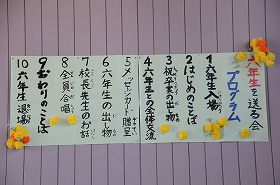 六年生を送る会
プログラム
1 六年生入場
2 はじめのことば
3 祝卒業の出し物
4 六年生との全体交流
5 メッセージカード贈呈
6 六年生の出し物
7 校長先生のお話
8 全員合唱
9 おわりのことば
10 六年生退場